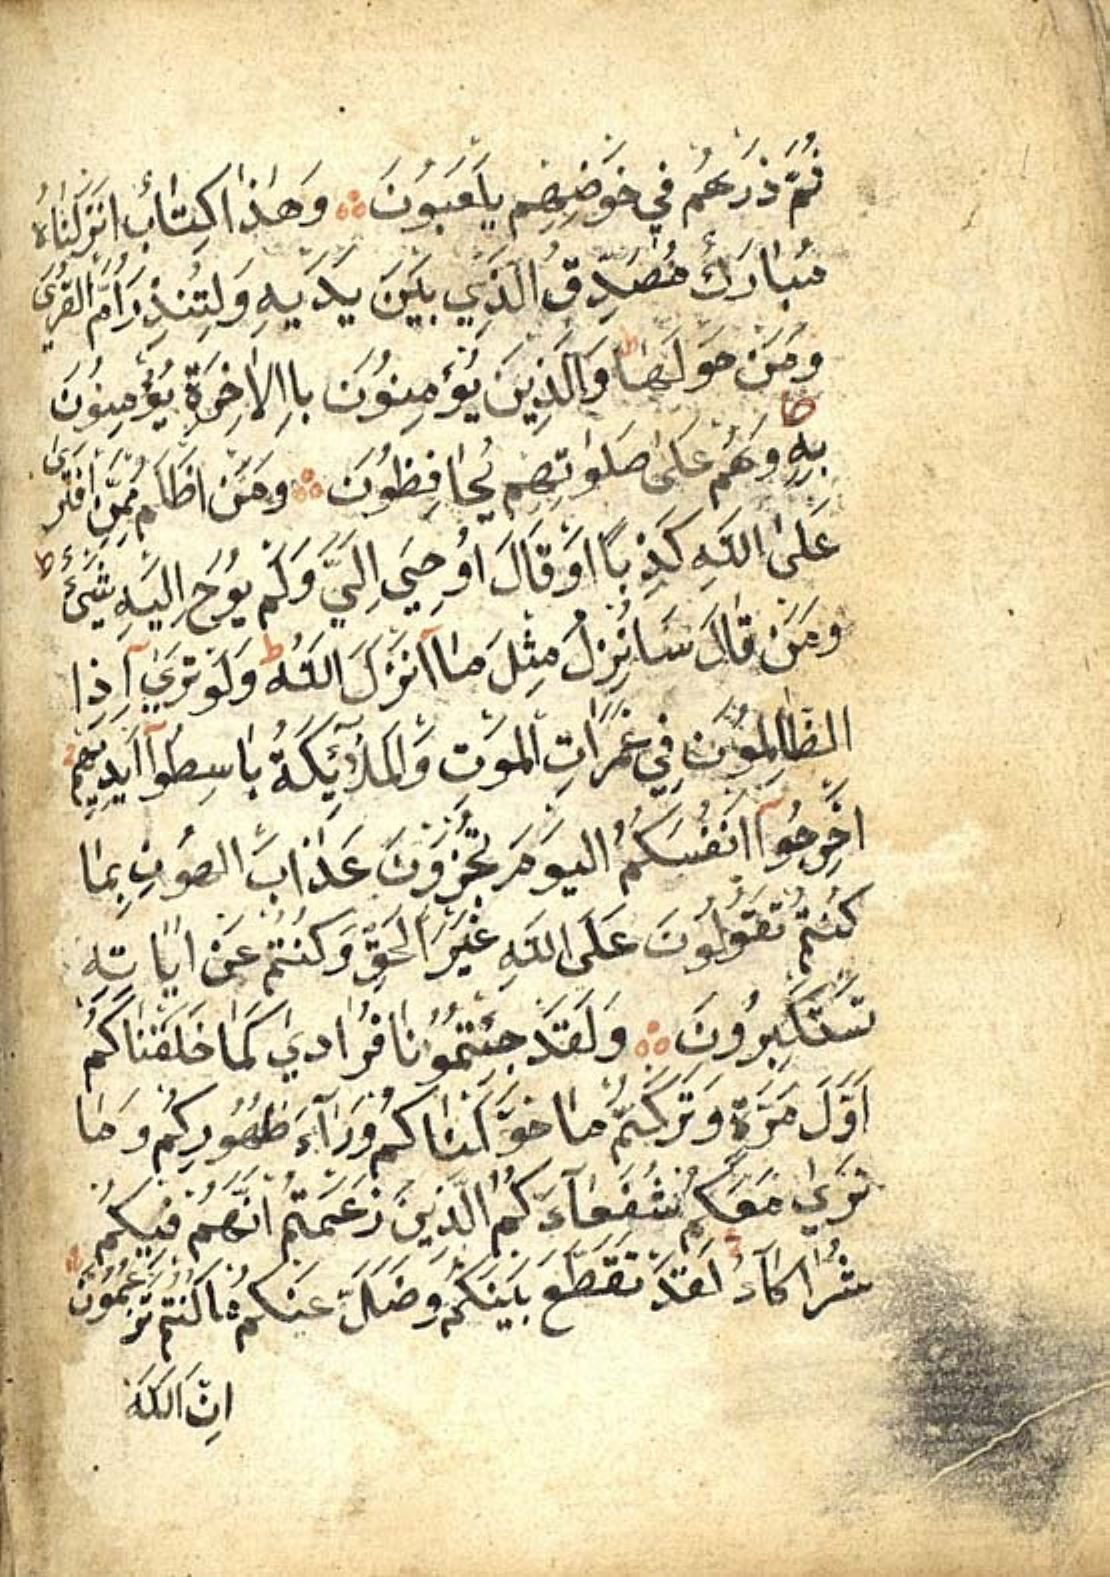 ثُمَّ ذَرْهُمْ فِي خَوْضِهِمْ يَلْعَبُونَ وَهٰذَا كِتَابٌ اَنْزَلْنَاهُ
مُبَارَكٌ مُصَدِّقُ الَّذِي بَيْنَ يَدَيْهِ وَلِتُنْذِرَ اُمَّ الْقُرٰى
وَمَنْ حَوْلَهَا ط وَالَّذِينَ يُؤْمِنُونَ بِالْاٰخِرَةِ يُؤْمِنُونَ
بِهِ وَهُمْ عَلٰى صَلَوٰاتِهِمْ يُحَافِظُونَ وَمَنْ اَظْلَمُ مِمَّنِ افْتَرٰى
عَلَى اللّٰهِ كَذِبًا اَوْ قَالَ اُوحِيَ اِلَيَّ وَلَمْ يُوحَ اِلَيْهِ شَيْءٌ ط
وَمَنْ قَالَ سَاُنْزِلُ مِثْلَ مَا اَنْزَلَ اللّٰهُ ط وَلَوْ تَرٰي اِذِ
الظَّالِمُونَ فِي غَمَرَاتِ الْمَوْتِ وَالْمَلٰٓئِكَةُ بَاسِطُوٓا اَيْدِيهِمْ
اَخْرِجُوٓا اَنْفُسَكُمُ الْيَوْمَ تُجْزَوْنَ عَذَابَ الْهُونِ بِمَا
كُنْتُمْ تَقُولُونَ عَلَى اللّٰهِ غَيْرَ الْحَقِّ وَكُنْتُمْ عَنْ اٰيَاتِهِ
تَسْتَكْبِرُونَ وَلَقَدْ جِئْتُمُونَا فُرَادٰي كَمَا خَلَقْنَاكُمْ
اَوَّلَ مَرَّةٍ وَتَرَكْتُمْ مَا خَوَّلْنَاكُمْ وَرَآءَ ظُهُورِكُمْ وَمَا
نَرٰي مَعَكُمْ شُفَعَآءَكُمُ الَّذِينَ زَعَمْتُمْ اَنَّهُمْ فِيكُمْ
شُرَكَآءُ لَقَدْ تَقَطَّعَ بَيْنَكُمْ وَضَلَّ عَنْكُمْ مَا كُنْتُمْ تَزْعُمُونَ
اِنَّ اللّٰهَ